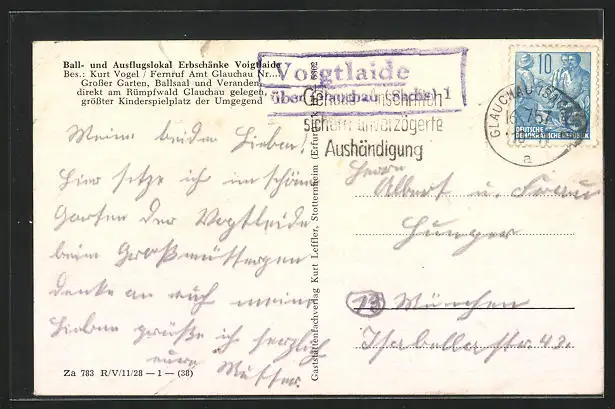 Ball- und Ausflugslokal Erbschänke Voigtlaide
Bes.: Kurt Vogel / Fernruf Amt Glauchau Nr....
Großer Garten, Ballsaal und Veranden
direkt am Rümpfwald Glauchau gelegen,
größter Kinderspielplatz der Umgegend
Voigtlaide
über Glauchau (Sachs) 1
Genaue Anschrift
sichert unverzögerte
Aushändigung
10
DEUTSCHE
DEMOKRATISCHE REPUBLIK
GLAUCHAU (SACHS)
16.7.57
a
Meine beiden Lieben!
Hier sitze ich im schönen
Garten der Vogtleide
beim Großmüttergen
denke an euch meine
Lieben grüße ich herzlich
eure Mutter.
Herrn
Albert u. Frau
Hunger
(13) München
Isabellastr. 43.
Gaststättenfachverlag Kurt Leffler, Stotternheim (Erfurt)
Za 783 R/V/11/28 — 1 — (38)